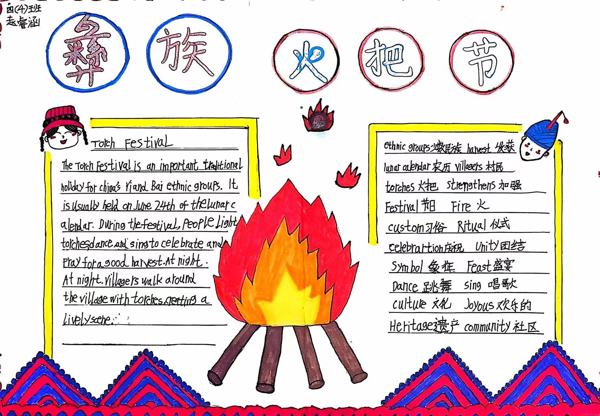 四(4)班
赵睿涵
彝族 火把节
Torch Festival
The Torch Festival is an important, traditional
holiday for china's Yi and Bai ethnic groups. It
is usually held on June 24th of the lunar c
alendar. During the festival, People Light
torches dance and sing to celebrate and
Pray for a good harvest. At night.
At night. villagers walk around
the village with torches, creating a
Lively scene.
ethnic groups 民族 harvest 收获
lunar calendar 农历 villagers 村民
torches 火把 strengthens 加强
Festival 节日 Fire 火
custom 习俗 Ritual 仪式
celebrartion 庆祝 Unity 团结
Symbol 象征 Feast 盛宴
Dance 跳舞 sing 唱歌
culture 文化 Joyous 欢乐的
Heritage 遗产 community 社区